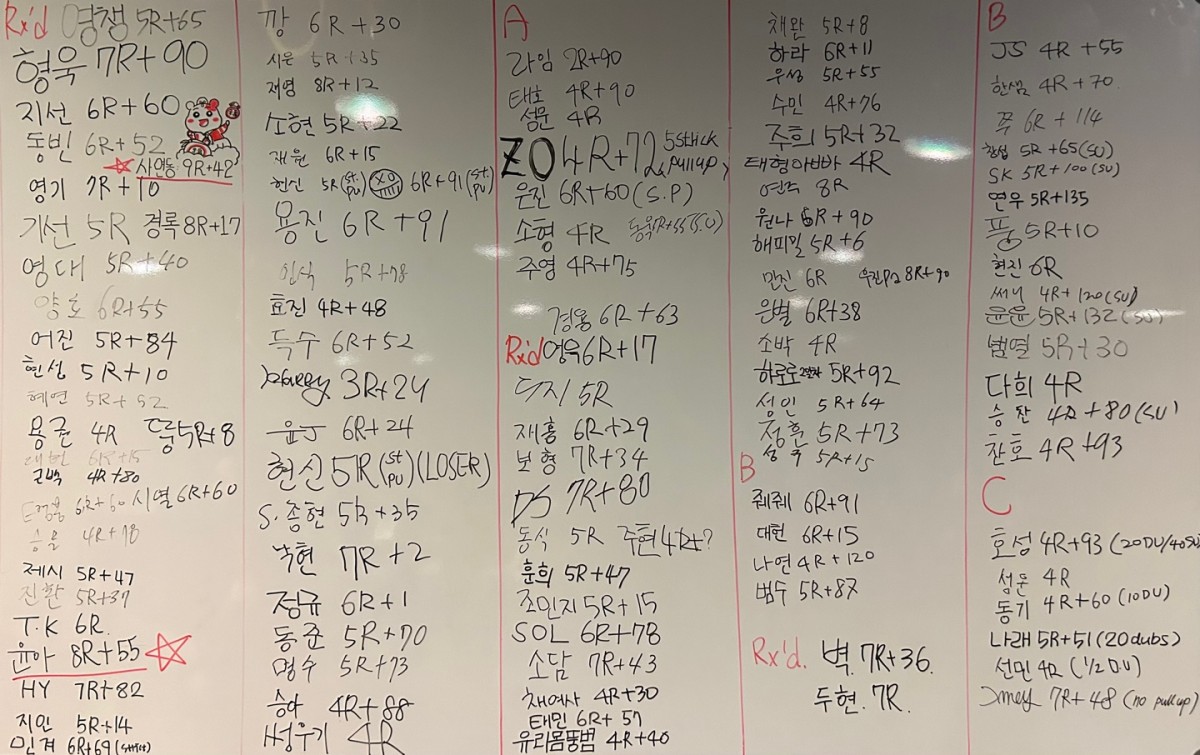 Rx'd 영쟁 5R+65
형욱 7R+90
지선 6R+60
동빈 6R+52
사연동 9R+42
영기 7R+10
기선 5R 경록 8R+17
영대 5R+40
양호 6R+55
어진 5R+84
현성 5R+10
혜연 5R+52
용권 4R 5R+8
6R+15
4R+80
6R+60 시열 6R+60
승율 4R+18
제시 5R+47
진환 5R+37
T.K 6R
윤아 8R+55
HY 7R+82
지인 5R+14
민겸 6R+69
깡 6R+30
시은 5R+35
재영 8R+12
소현 5R+22
재원 6R+15
현신 5R (St. pu) 6R+91 (St. pu)
용진 6R+91
인식 5R+78
효진 4R+48
득수 6R+52
3R+24
윤J 6R+24
현신 5R (St pu) (LOSER)
S. 송현 5R+35
낙현 7R+2
정규 6R+1
동준 5R+70
명수 5R+73
승아 4R+88
4R
A
라임 2R+90
태호 4R+90
성문 4R
ZO 4R+72 5strick pullup
은진 6R+60 (S.P)
소형 4R 동욱 7R+55 (S.U)
주영 4R+75
경용 6R+63
Rx'd 영욱 6R+17
두지 5R
재홍 6R+29
보형 7R+34
DS 7R+80
동식 5R 주현 4R+?
훈희 5R+47
조민지 5R+15
SOL 6R+78
소담 7R+43
채여사 4R+30
태민 6R+57
유리몸뚱범 4R+40
채완 5R+8
하라 6R+11
우성 5R+55
수민 4R+76
주희 5R+32
태형아빠 4R
연주 8R
원나 6R+90
해피밀 5R+6
민진 6R 우진pa 8R+90
은별 6R+38
소박 4R
하로로 5R+92
성인 5R+64
정훈 5R+73
성욱 5R+15
B
줴줴 6R+91
대현 6R+15
나연 4R+120
범수 5R+87
Rx'd. 벽 7R+36.
두현. 7R.
B
JS 4R+55
한샘 4R+70.
쭈 6R+114
5R+65 (SU)
SK 5R+100 (SU)
연우 5R+135
풍 5R+10
현진 6R
써니 4R+120 (SU)
윤윤 5R+132 (SU)
범열 5R+30
다희 4R
승찬 4R+80 (SU)
찬호 4R+93
C
호성 4R+93 (20DU/40SU
성문 4R
동기 4R+60 (10DU)
나래 5R+51 (20dubs)
선민 4R (1/2 DU)
7R+48 (no pullup)